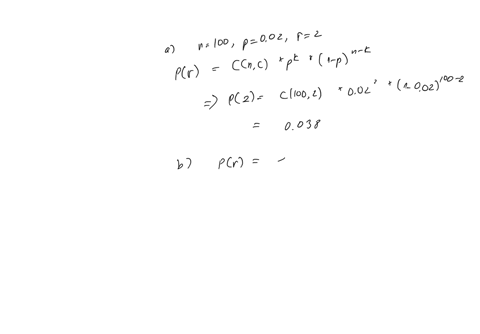 a) n=100, p=0.02, r=2
P(r) = C(n,c) * p^k * (1-p)^n-k
=> P(2) = C(100,2) * 0.02² * (1-0.02)^100-2
= 0.038
b) P(r) =